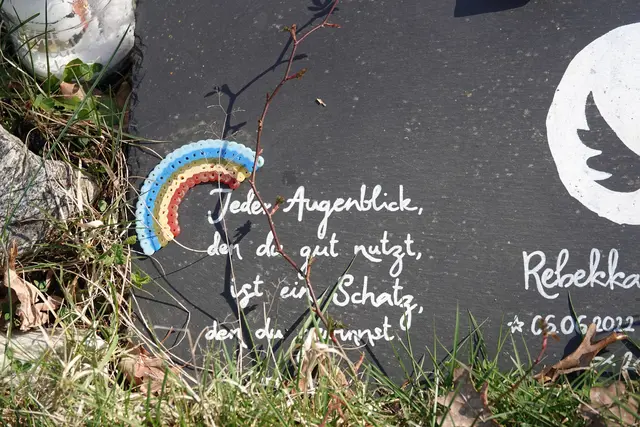 Jeder Augenblick,
den du gut nutzt,
ist ein Schatz,
den du
Rebekka
☆ 06.06.2022